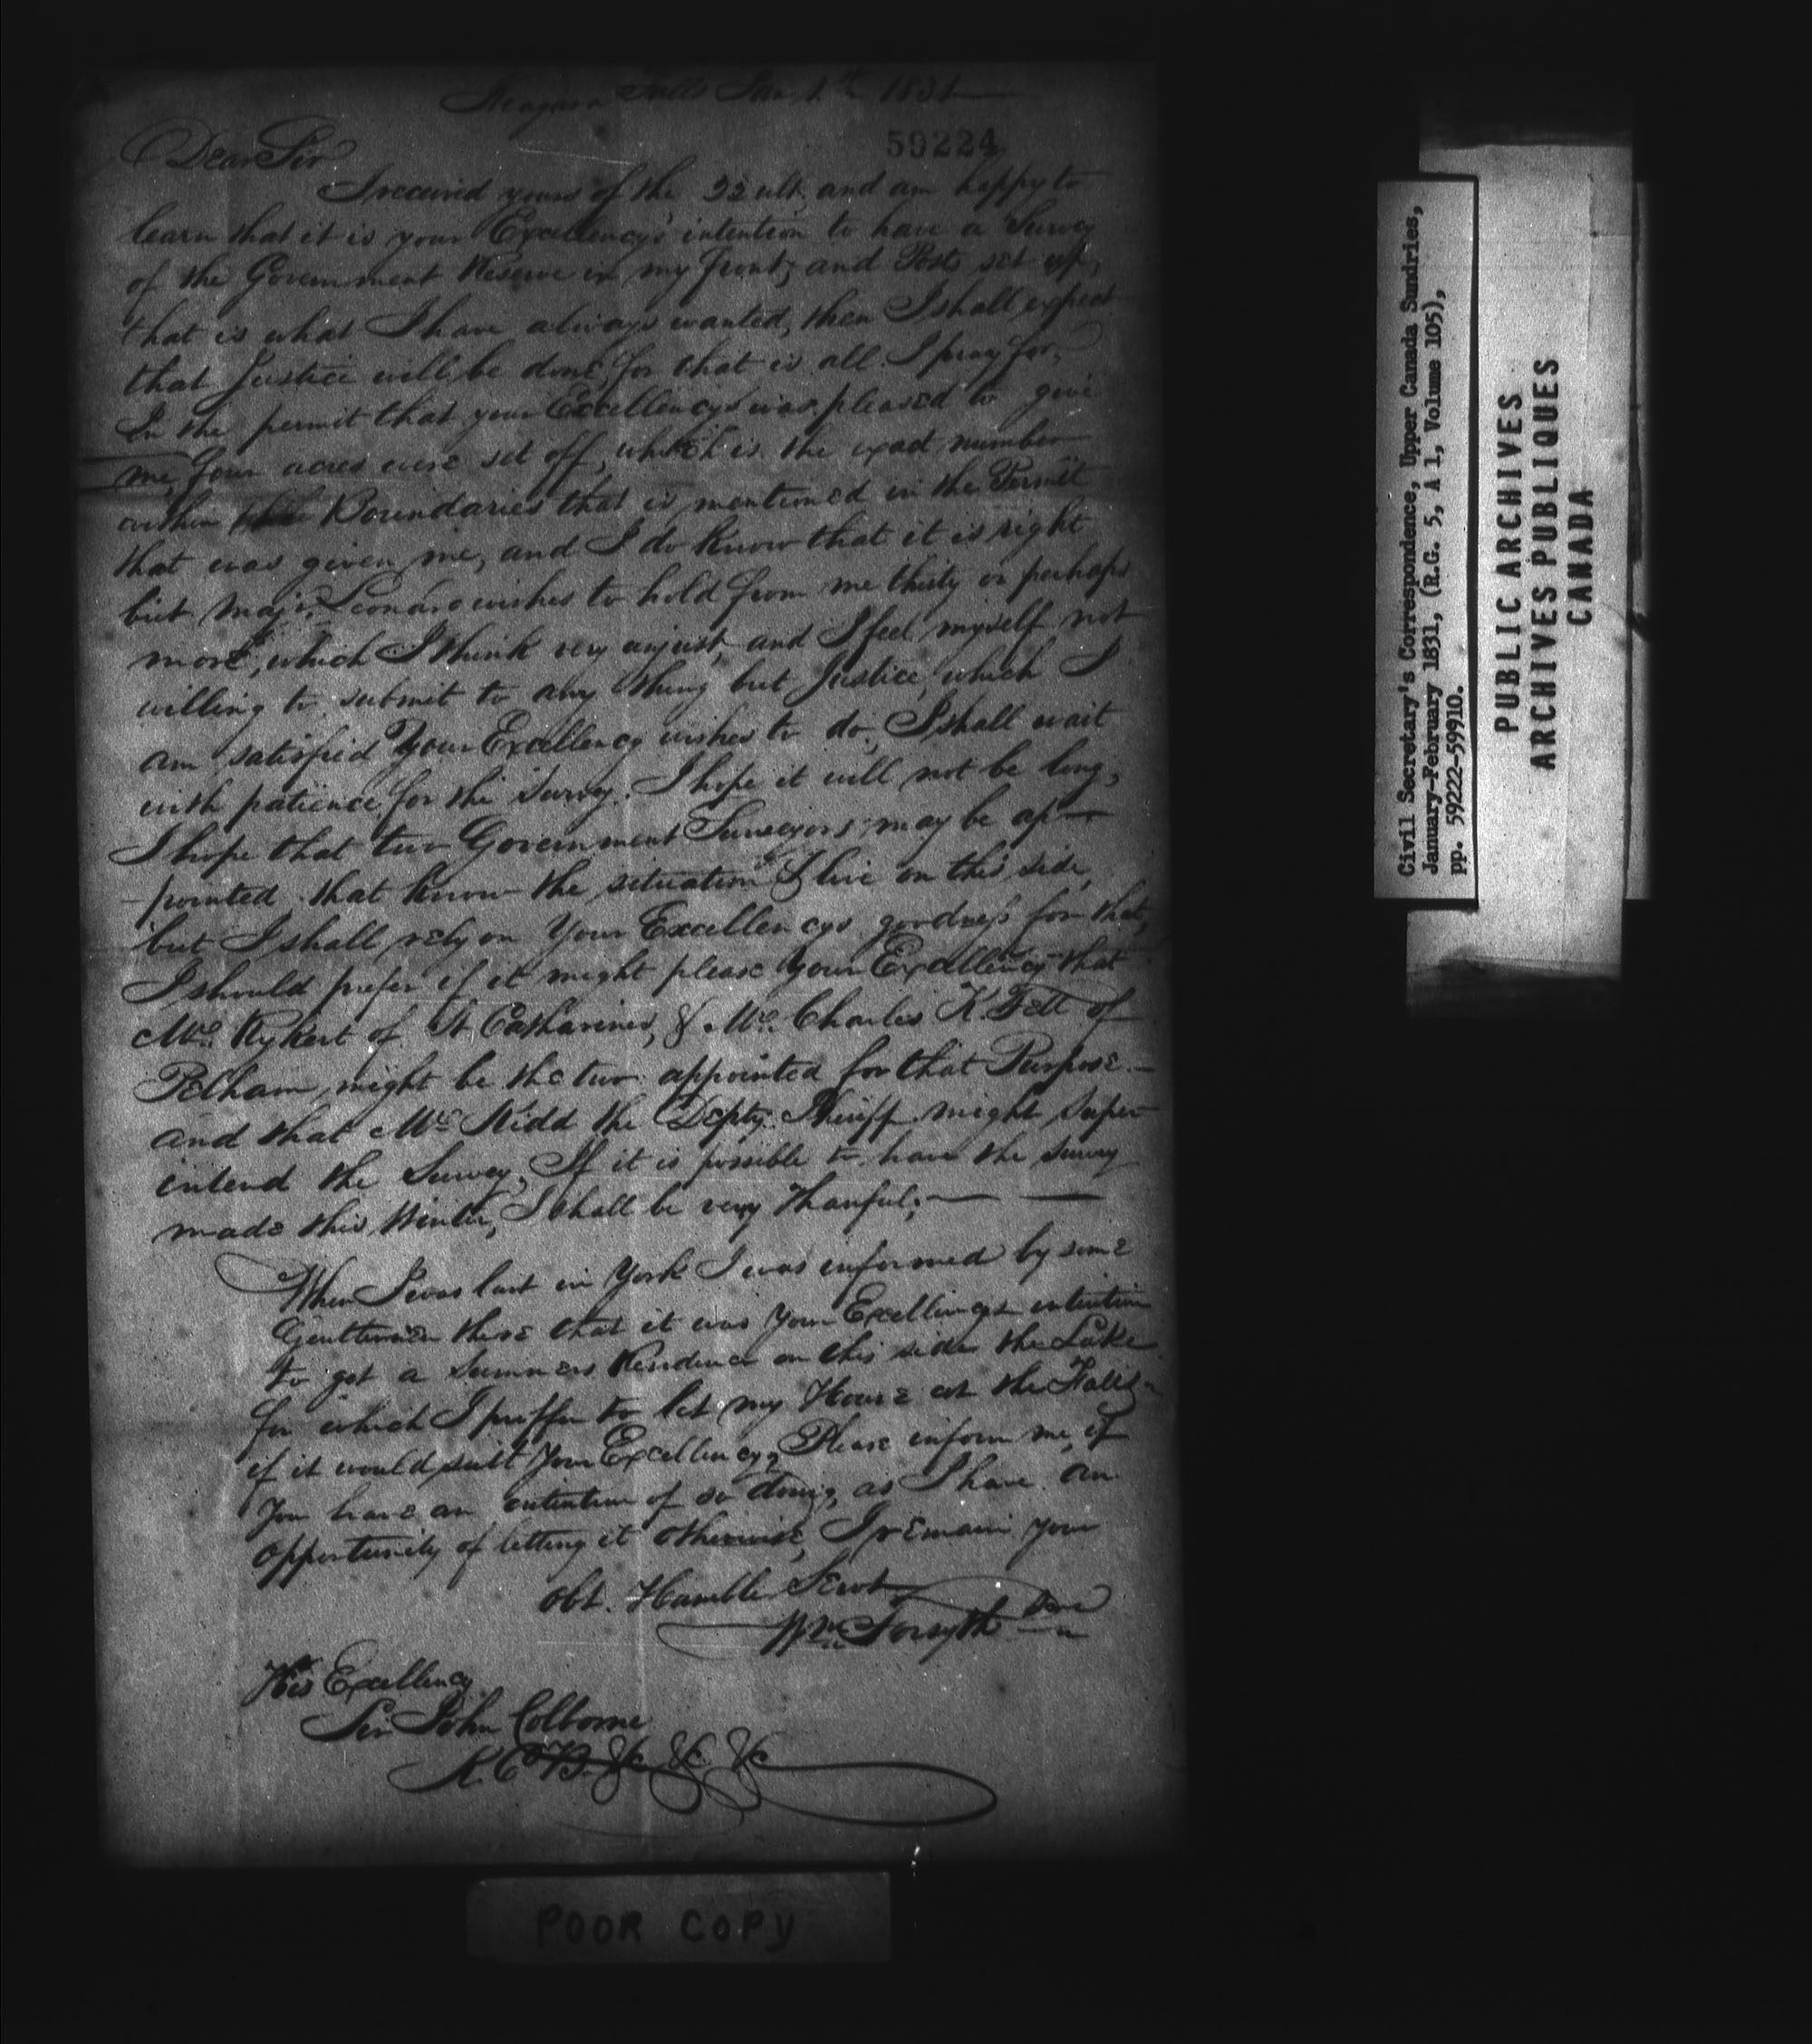 Niagara Falls Jan 1st 1831
59224
Dear Sir
I received yours of the 22 ult. and am happy to
learn that it is your Excellency's intention to have a Survey
of the Government Reserve in my front; and Posts set up,
that is what I have always wanted, then I shall expect
that Justice will be done, for that is all I pray for,
In the permit that your Excellencys was pleased to give
me, four acres were set off, which is the exact number
within Boundaries that is mentioned in the Permit
that was given me, and I do know that it is right
but Majr. Leonard wishes to hold from me thirty or perhaps
more, which I think very unjust, and I feel myself not
willing to submit to any thing but Justice, which I
am satisfied Your Excellency wishes to do, I shall wait
with patience for the Survey. I hope it will not be long,
I hope that two Government Surveyors may be ap-
-pointed that know the situation I live on this side,
but I shall rely on Your Excellencys goodness for that,
I should prefer if it might please Your Excellency that
Mr. Rykert of St Catharines, & Mr. Charles K. Fell of
Pelham, might be the two appointed for that Purpose.-
and that Mr. Kidd the Depty. Sheriff might super
intend the Survey, If it is possible to have the Survey
made this Winter, I shall be very thanful;
When I was last in York I was informed by some
Gentlemen there that it was Your Excellencys intention
to get a Summers Residence on this side the Lake
for which I proffer to let my House at the Falls
if it would suit Your Excellency, Please inform me, if
You have an intention of so doing, as I have an
opportunity of letting it otherwise, I remain your
obt. Humble Servt
Wm Forsyth Senr
His Excellency
Sir John Colborne
K.C.B. &c &c &c
POOR COPY
Civil Secretary's Correspondence, Upper Canada Sundries,
January-February 1831, (R.G. 5, A 1, Volume 105),
pp. 59222-59910.
PUBLIC ARCHIVES
ARCHIVES PUBLIQUES
CANADA